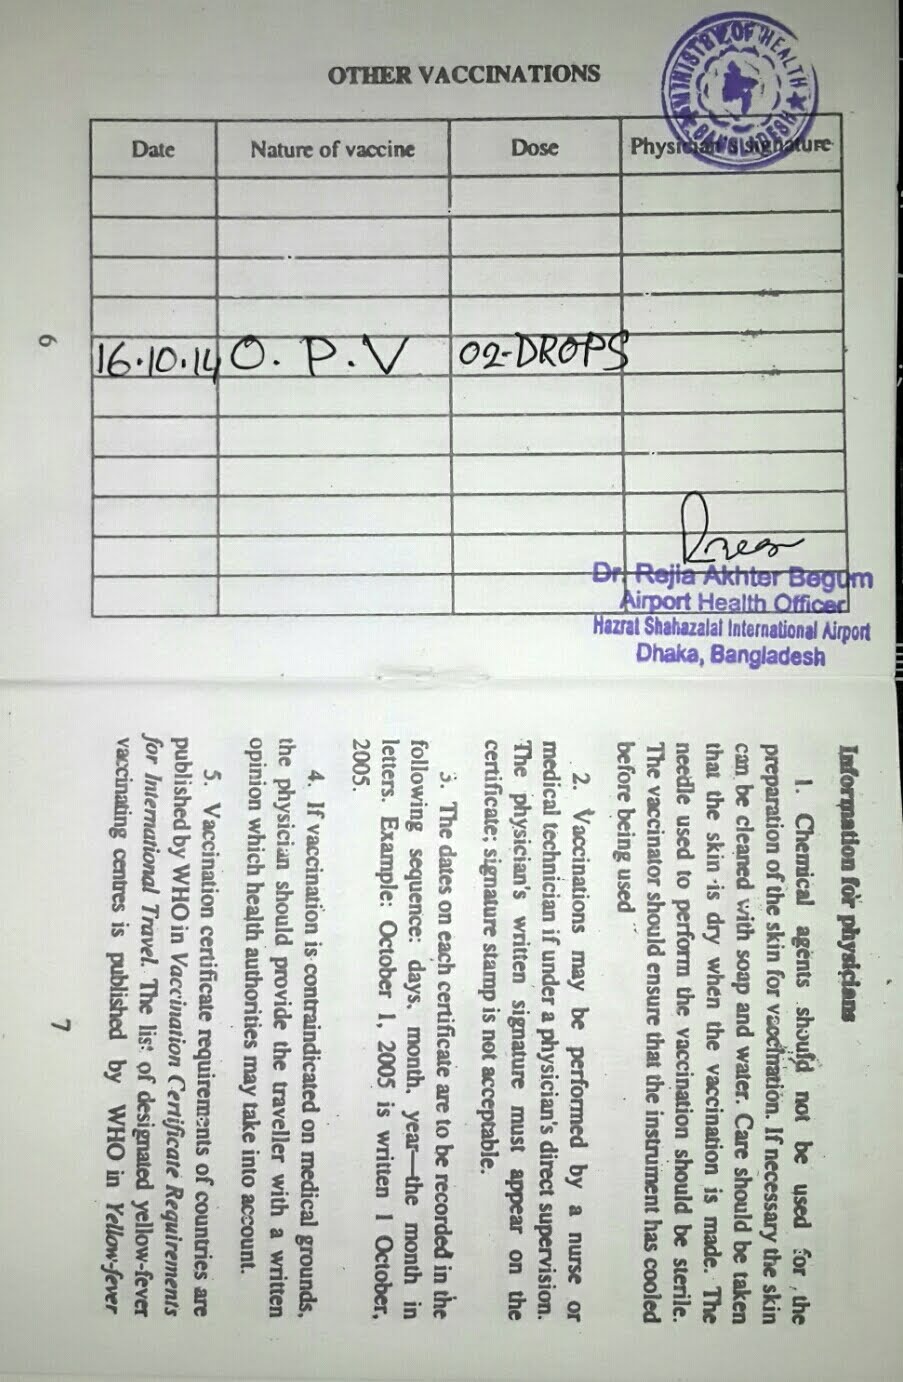 MINISTRY OF HEALTH
BANGLADESH
OTHER VACCINATIONS
Date Nature of vaccine Dose Physician's signature
16.10.14 O. P. V 02-DROPS
Dr. Rejia Akhter Begum
Airport Health Officer
Hazrat Shahazalal International Airport
Dhaka, Bangladesh
6
Information for physicians
1. Chemical agents should not be used for the
preparation of the skin for vaccination. If necessary the skin
can be cleaned with soap and water. Care should be taken
that the skin is dry when the vaccination is made. The
needle used to perform the vaccination should be sterile.
The vaccinator should ensure that the instrument has cooled
before being used
2. Vaccinations may be performed by a nurse or
medical technician if under a physician's direct supervision.
The physician's written signature must appear on the
certificate; signature stamp is not acceptable.
3. The dates on each certificate are to be recorded in the
following sequence: days, month, year—the month in
letters. Example: October 1, 2005 is written 1 October,
2005.
4. If vaccination is contraindicated on medical grounds,
the physician should provide the traveller with a written
opinion which health authorities may take into account.
5. Vaccination certificate requirements of countries are
published by WHO in Vaccination Certificate Requirements
for International Travel. The list of designated yellow-fever
vaccinating centres is published by WHO in Yellow-fever
7